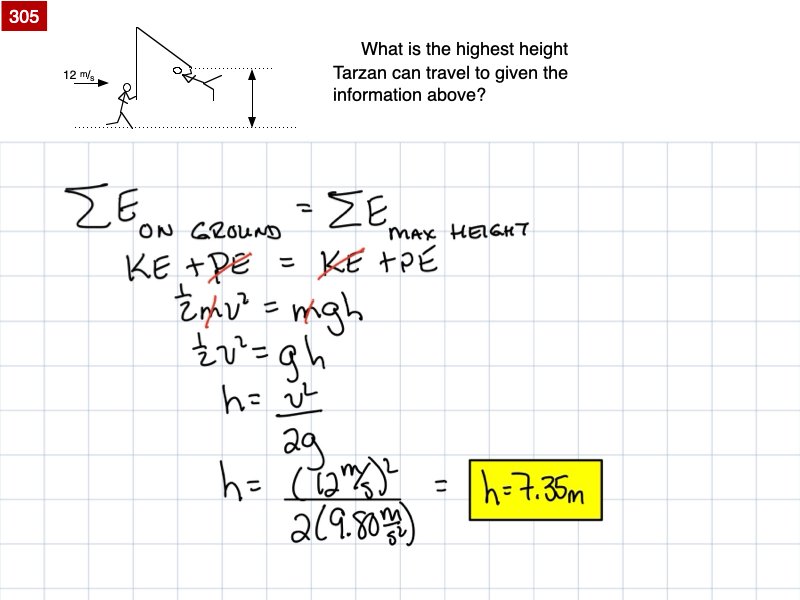 305
12 m/s
What is the highest height
Tarzan can travel to given the
information above?
ΣE ON GROUND = ΣE MAX HEIGHT
KE + PE = KE + PE
½mv² = mgh
½v² = gh
h = v²/2g
h = (12 m/s)²/2(9.80 m/s²) = h = 7.35m